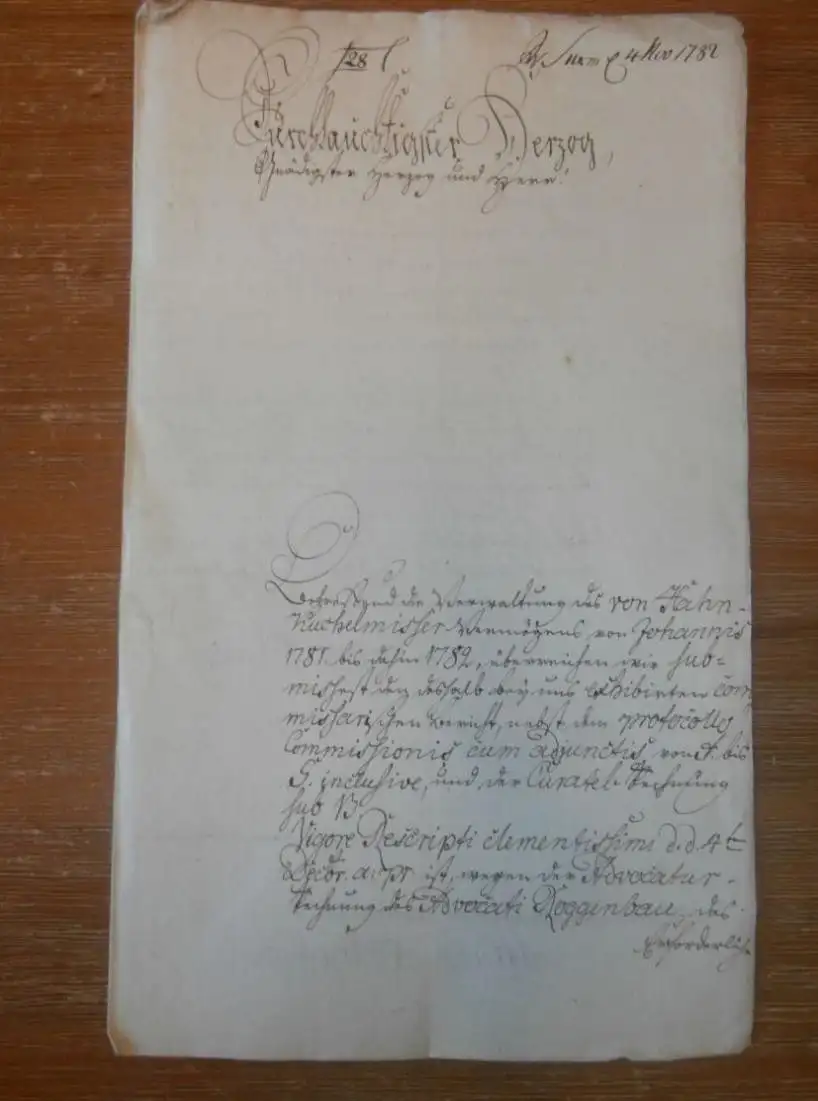 128
4 Nov 1782
Durchlauchtigster Herzog,
Gnädigster Herzog und Herr!
Betreffend die Verwaltung des von Hahn-
Kuchelmisser Vermögens, von Johannis
1781. bis dahin 1782, überreichen wir sub-
missest den deshalb bey uns exhibirten com
missarischen Bericht, nebst dem protocollo
Commissionis cum adjunctis, von F. bis
G. inclusive, und der Curatel-Rechnung
sub B
Vigore Rescripti clementissimi d. d. 4t
Decbr. a. pr ist, wegen der Advocatur-
Rechnung des Advocati Roggenbau, das
Erforderliche